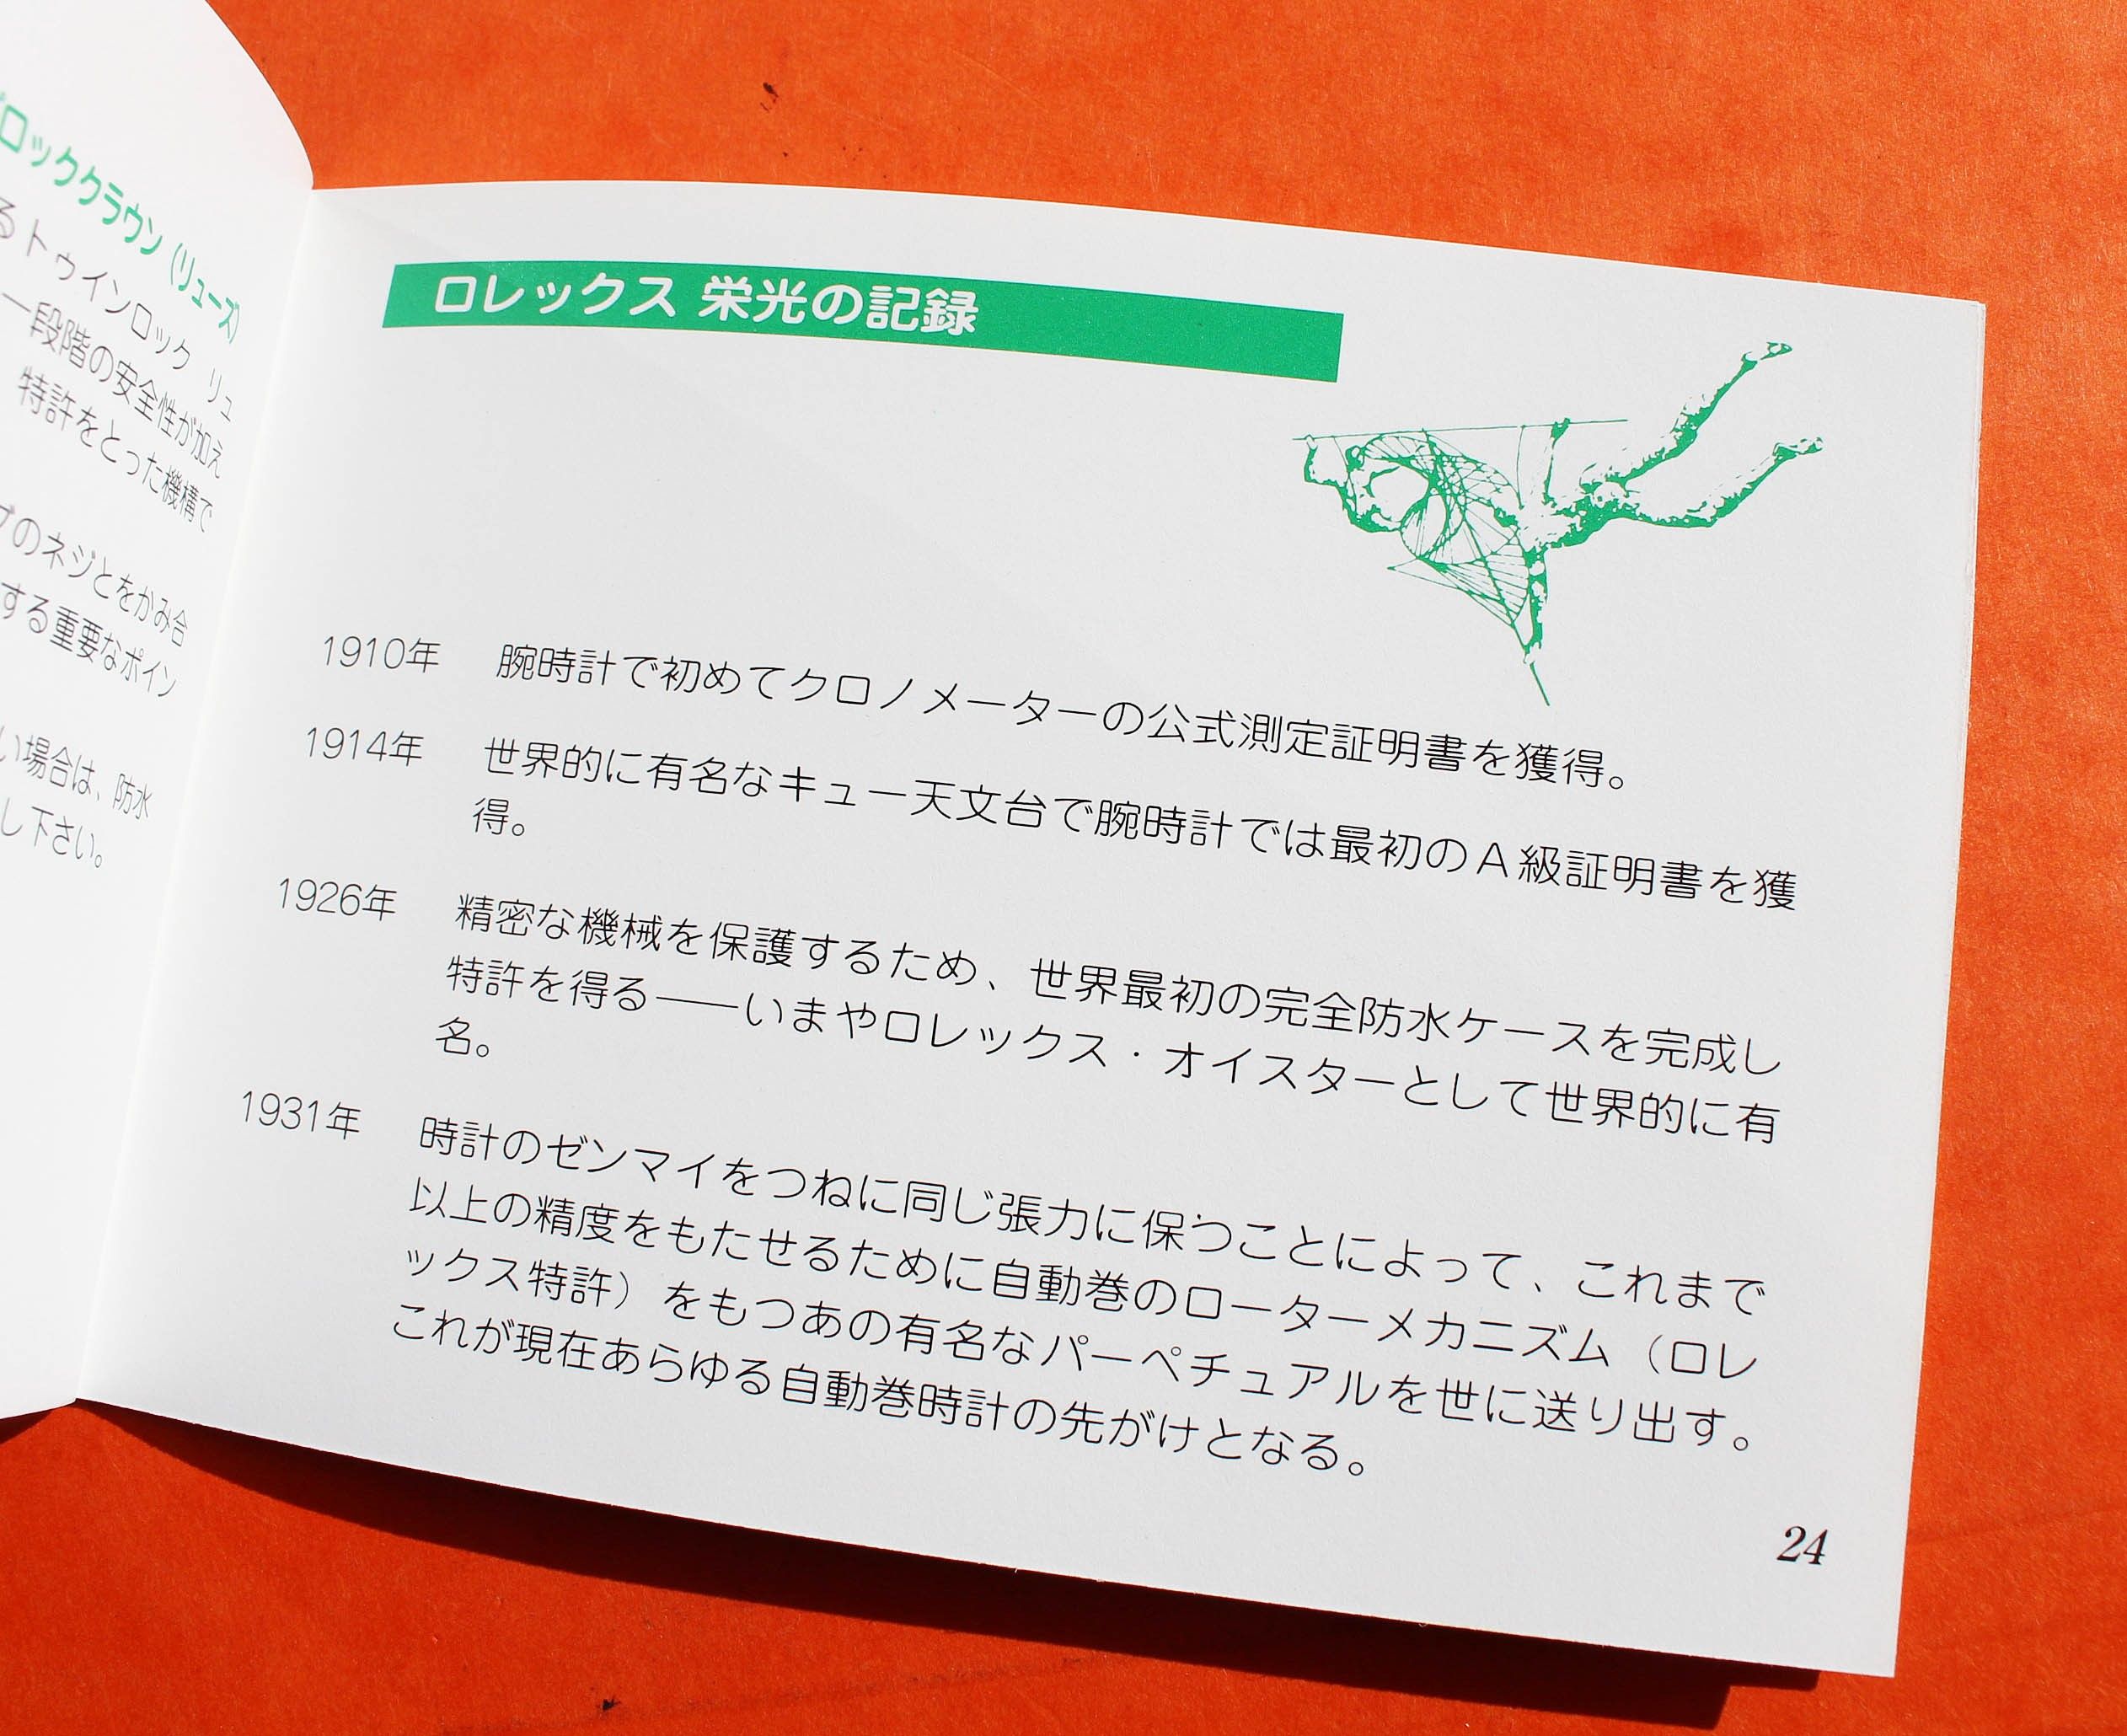 ロッククラウン（リューズ）
るトゥインロック リュ
一段階の安全性が加え
特許をとった機構で
のネジとをかみ合
する重要なポイン
い場合は、防水
し下さい。
ロレックス 栄光の記録
1910年 腕時計で初めてクロノメーターの公式測定証明書を獲得。
1914年 世界的に有名なキュー天文台で腕時計では最初のA級証明書を獲
得。
1926年 精密な機械を保護するため、世界最初の完全防水ケースを完成し
特許を得る――いまやロレックス・オイスターとして世界的に有
名。
1931年 時計のゼンマイをつねに同じ張力に保つことによって、これまで
以上の精度をもたせるために自動巻のローターメカニズム（ロレ
ックス特許）をもつあの有名なパーペチュアルを世に送り出す。
これが現在あらゆる自動巻時計の先がけとなる。
24